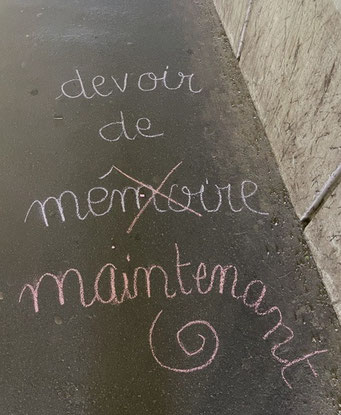 devoir
de
mémoire
maintenant